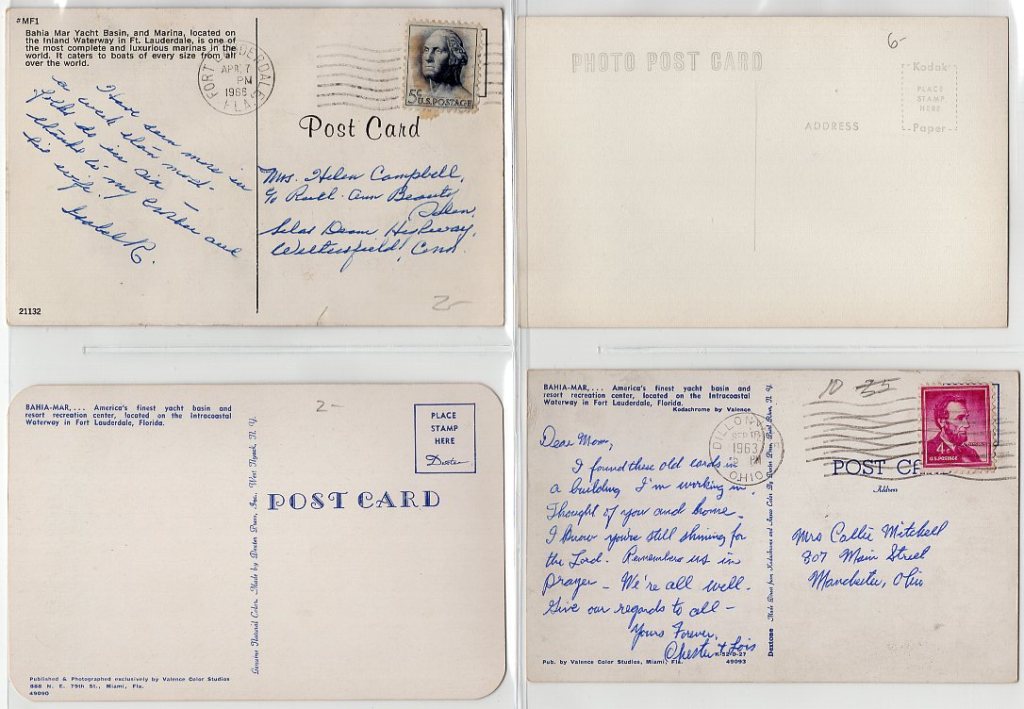 #MF1
Bahia Mar Yacht Basin, and Marina, located on
the Inland Waterway in Ft. Lauderdale, is one of
the most complete and luxurious marinas in the
world. It caters to boats of every size from all
over the world.
FORT LAUDERDALE
APR 7
PM
1966
FLA.
5¢
U.S. POSTAGE
Post Card
Have seen more in
a week than most
folks do in six
thanks to my brother and
his wife.
Isabel R.
Mrs. Helen Campbell,
c/o Ruth-Ann Beauty
Salon,
Silas Deane Highway,
Wethersfield, Conn.
21132
2-
6-
PHOTO POST CARD
Kodak
PLACE
STAMP
HERE
Paper
ADDRESS
BAHIA-MAR,... America's finest yacht basin and
resort recreation center, located on the Intracoastal
Waterway in Fort Lauderdale, Florida.
2-
PLACE
STAMP
HERE
Dexter
POST CARD
Genuine Natural Color. Made by Dexter Press, Inc., West Nyack, N. Y.
Published & Photographed exclusively by Valence Color Studios
668 N. E. 79th St., Miami, Fla.
49090
BAHIA-MAR,... America's finest yacht basin and
resort recreation center, located on the Intracoastal
Waterway in Fort Lauderdale, Florida.
Kodachrome by Valence
10 35
1963
PM
OHIO
4¢
U.S. POSTAGE
POST CA
Address
Dear Mom,
I found these old cards in
a building I'm working in.
Thought of you and home.
I know you're still shining for
the Lord. Remember us in
prayer - We're all well.
Give our regards to all -
Yours Forever,
Chester & Lois
Mrs Callie Mitchell
307 Main Street
Manchester, Ohio
Dextone
Pub. by Valence Color Studios, Miami, Fla.
49093